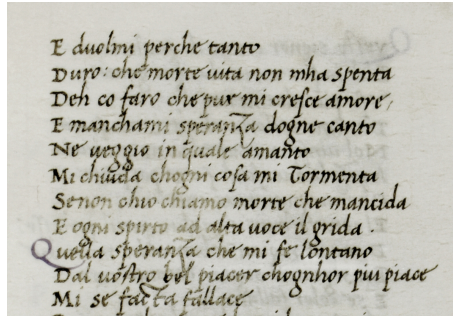 E duolmi perche tanto
Duro: che morte vita non mha spenta
Deh co faro che pur mi cresce amore,
E manchami speranza dogne canto
Ne veggio in quale amanto
Mi chiuda chogni cosa mi Tormenta
Senon chio chiamo morte che mancida
E ogni spirto ad alta voce il grida.
Quella speranza che mi fe lontano
Dal vostro bel piacer chognhor piu piace
Mi se facta fallace